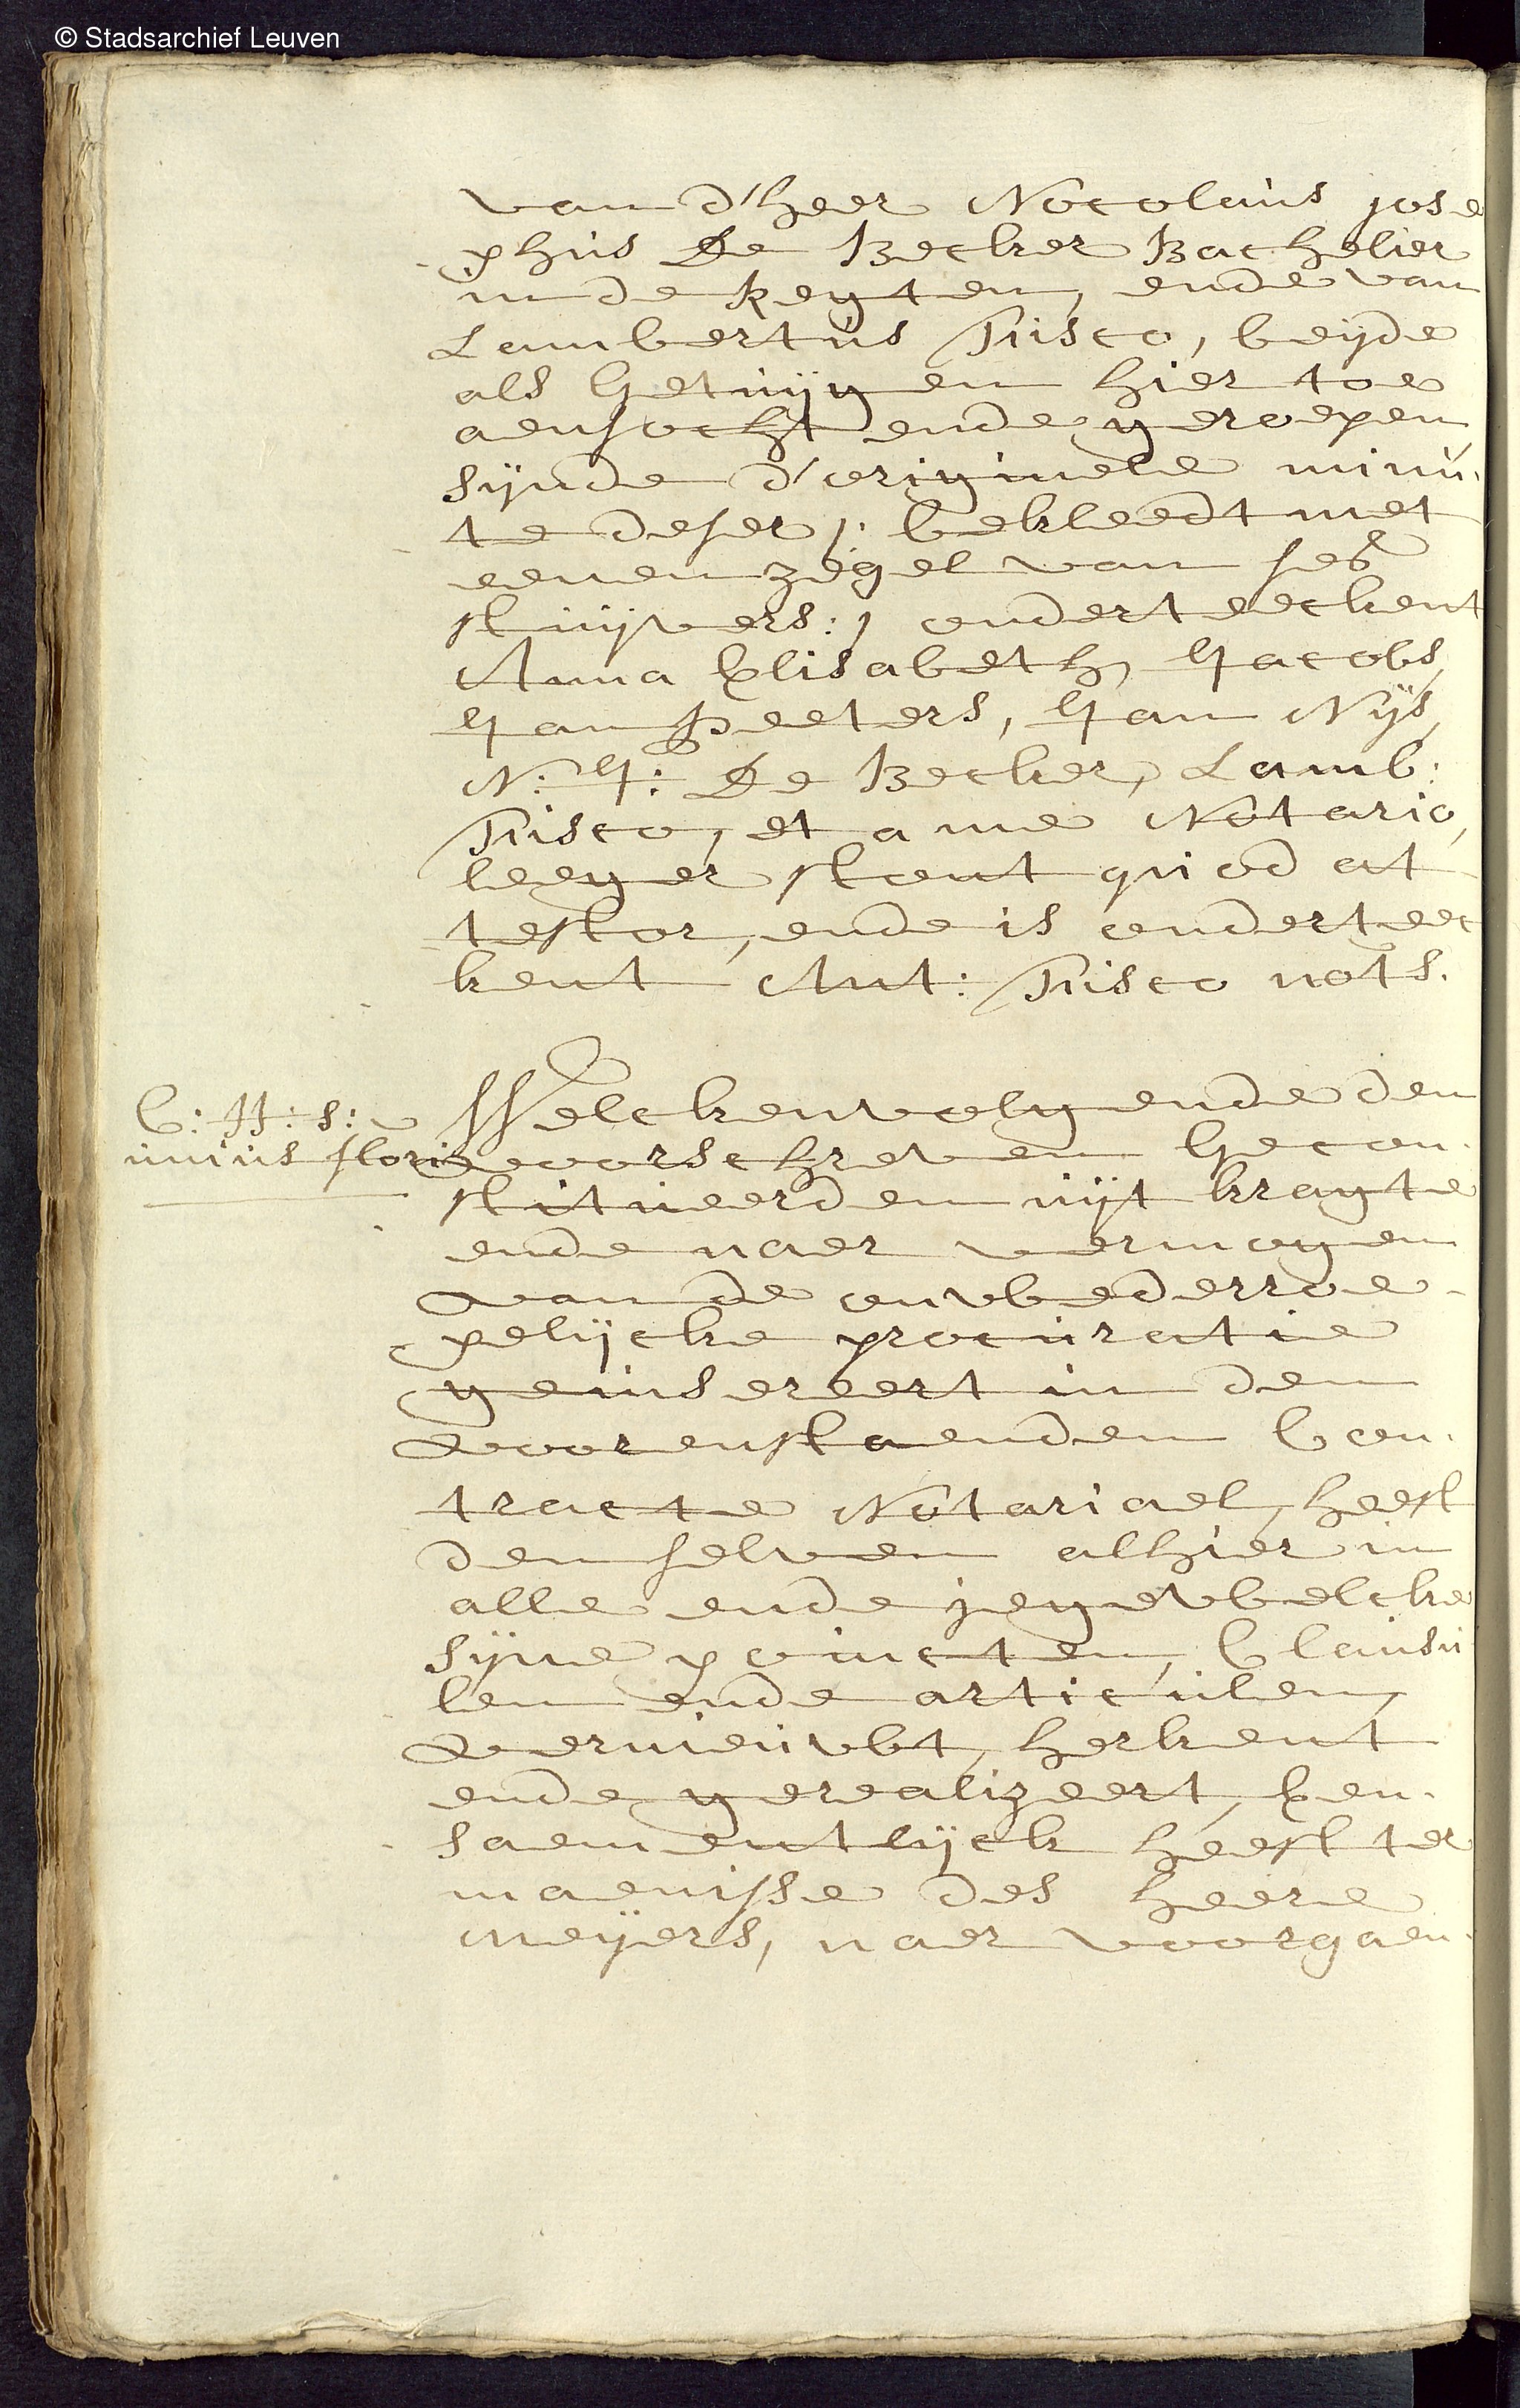 © Stadsarchief Leuven
van d'heer Nocolaus jose
phus De Becker Bachelier
in de Regten, ende van
Lambertus Tuisco, beyde
als Getuijgen hier toe
aensocht ende geroepen
sijnde d'originele minu-
te deser /: bekleedt met
eenen zegel van ses
stuijvers :/ onderteeckent
Anna Elisabeth Jacobs,
Jan Peeters, Jan Nijs,
N: J: De Becker, Lamb:
Tuisco, et a me Notario,
leeger stont quod at
testor, ende is onderteec
kent Ant: Tuisco nots.
C: H: s:
unius floris
Welckenvolgende den
voorschreven Gecon-
stitueerden uijt kragte
ende naer vermogen
van de onwederroe-
pelijcke procuratie
geinsereert in den
voorenstaenden Con-
tracte Notariael, heeft
den selven alhier in
alle ende jegewelcke
sijne poincten, Clausu
len ende articulen,
vernieuwt, herkent
ende gerealizeert, Con-
saementlijck heeft ter
maenisse des heere
Meijers, naer voorgaen-